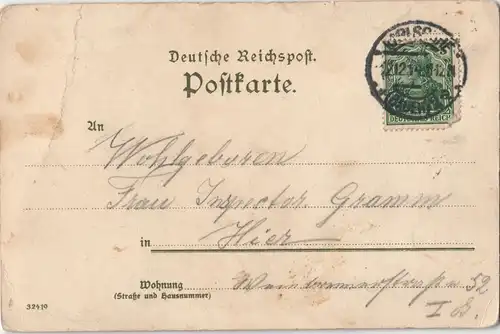 Deutsche Reichspost.
Postkarte.
DEUTSCHES REICH
An
Wohlgeboren
Frau Inspector Gramm
in Hier
Wohnung
52
(Straße und Hausnummer)
I
32419